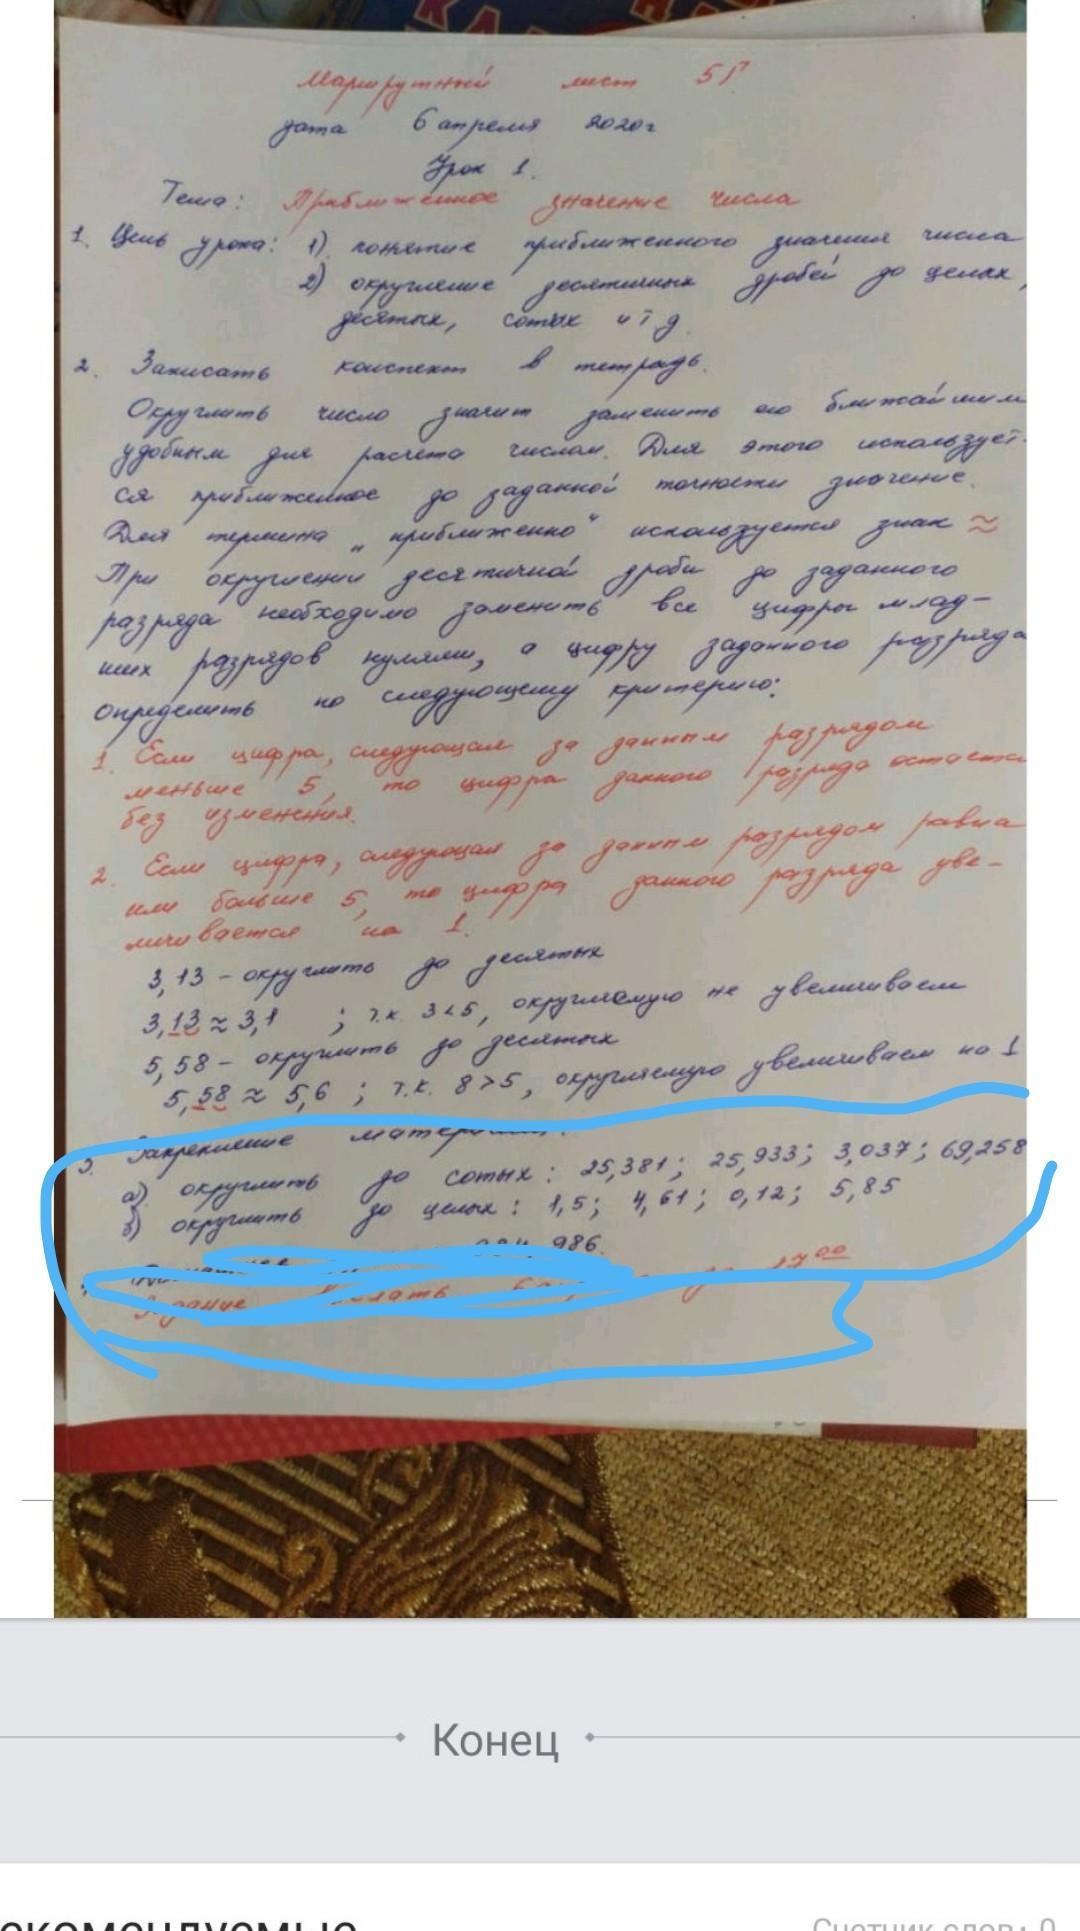 Маршрутный лист 5Г
дата 6 апреля 2020г
Урок 1.
Тема: Приближенное значение числа
1. Цель урока: 1) понятие приближенного значения числа
2) округление десятичных дробей до целых,
десятых, сотых и т д.
2. Записать конспект в тетрадь.
Округлить число значит заменить его ближайшим
удобным для расчета числом. Для этого использует-
ся приближенное до заданной точности значение.
Для термина „приближенно“ используется знак ≈
При округлении десятичной дроби до заданного
разряда необходимо заменить все цифры млад-
ших разрядов нулями, а цифру заданного разряда
определить по следующему критерию:
1. Если цифра, следующая за данным разрядом
меньше 5, то цифра данного разряда остается
без изменения.
2. Если цифра, следующая за данным разрядом равна
или больше 5, то цифра данного разряда уве-
личивается на 1.
3,13 - округлить до десятых
3,13 ≈ 3,1 ; т.к. 3<5, округляемую не увеличиваем
5,58 - округлить до десятых
5,58 ≈ 5,6 ; т.к. 8>5, округляемую увеличиваем на 1
3. Закрепление материала.
а) округлить до сотых: 25,381; 25,933; 3,037; 69,258
б) округлить до целых: 1,5; 4,61; 0,12; 5,85
986.
Задание до 17⁰⁰
Конец
Счетчик слов: 0